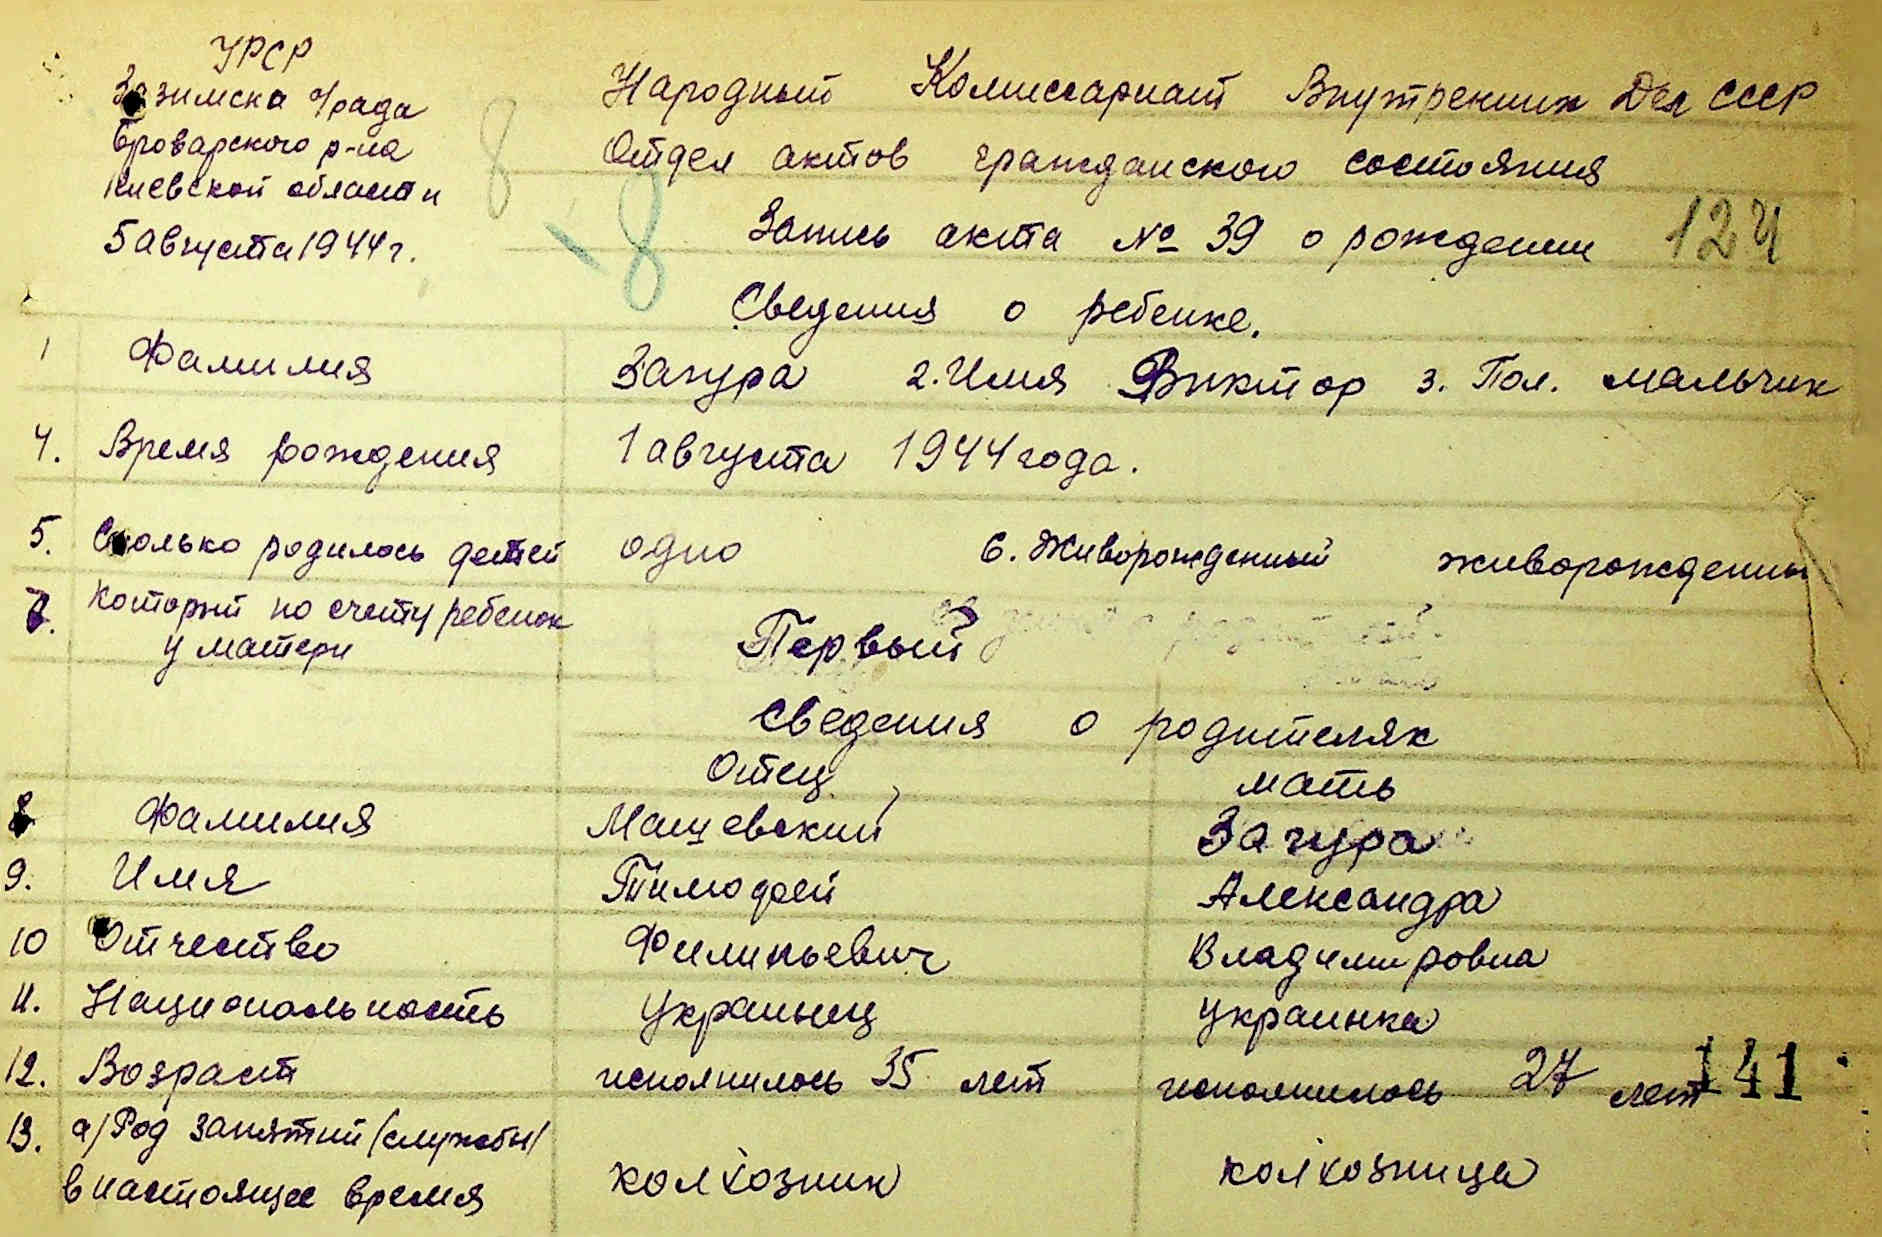 УРСР
Зазимска с/рада
Броварского р-на
Киевской области
5 августа 1944 г.
8
8
Народный Комиссариат Внутренних Дел СССР
Отдел актов гражданского состояния
Запись акта № 39 о рождении
124
Сведения о ребенке.
1 Фамилия Загура 2. Имя Виктор 3. Пол. мальчик
4. Время рождения 1 августа 1944 года.
5. Сколько родилось детей одно 6. Живорожденный живорожденны
7. Который по счету ребенок
у матери Первый
Сведения о родителях
Отец мать
8 Фамилия Мацевский Загура
9. Имя Тимофей Александра
10 Отчество Филипьевич Владимировна
11. Национальность Украинец украинка
12. Возраст исполнилось 35 лет исполнилось 27 лет
141
13. а/ Род занятий /службы/
в настоящее время колхозник колхозница